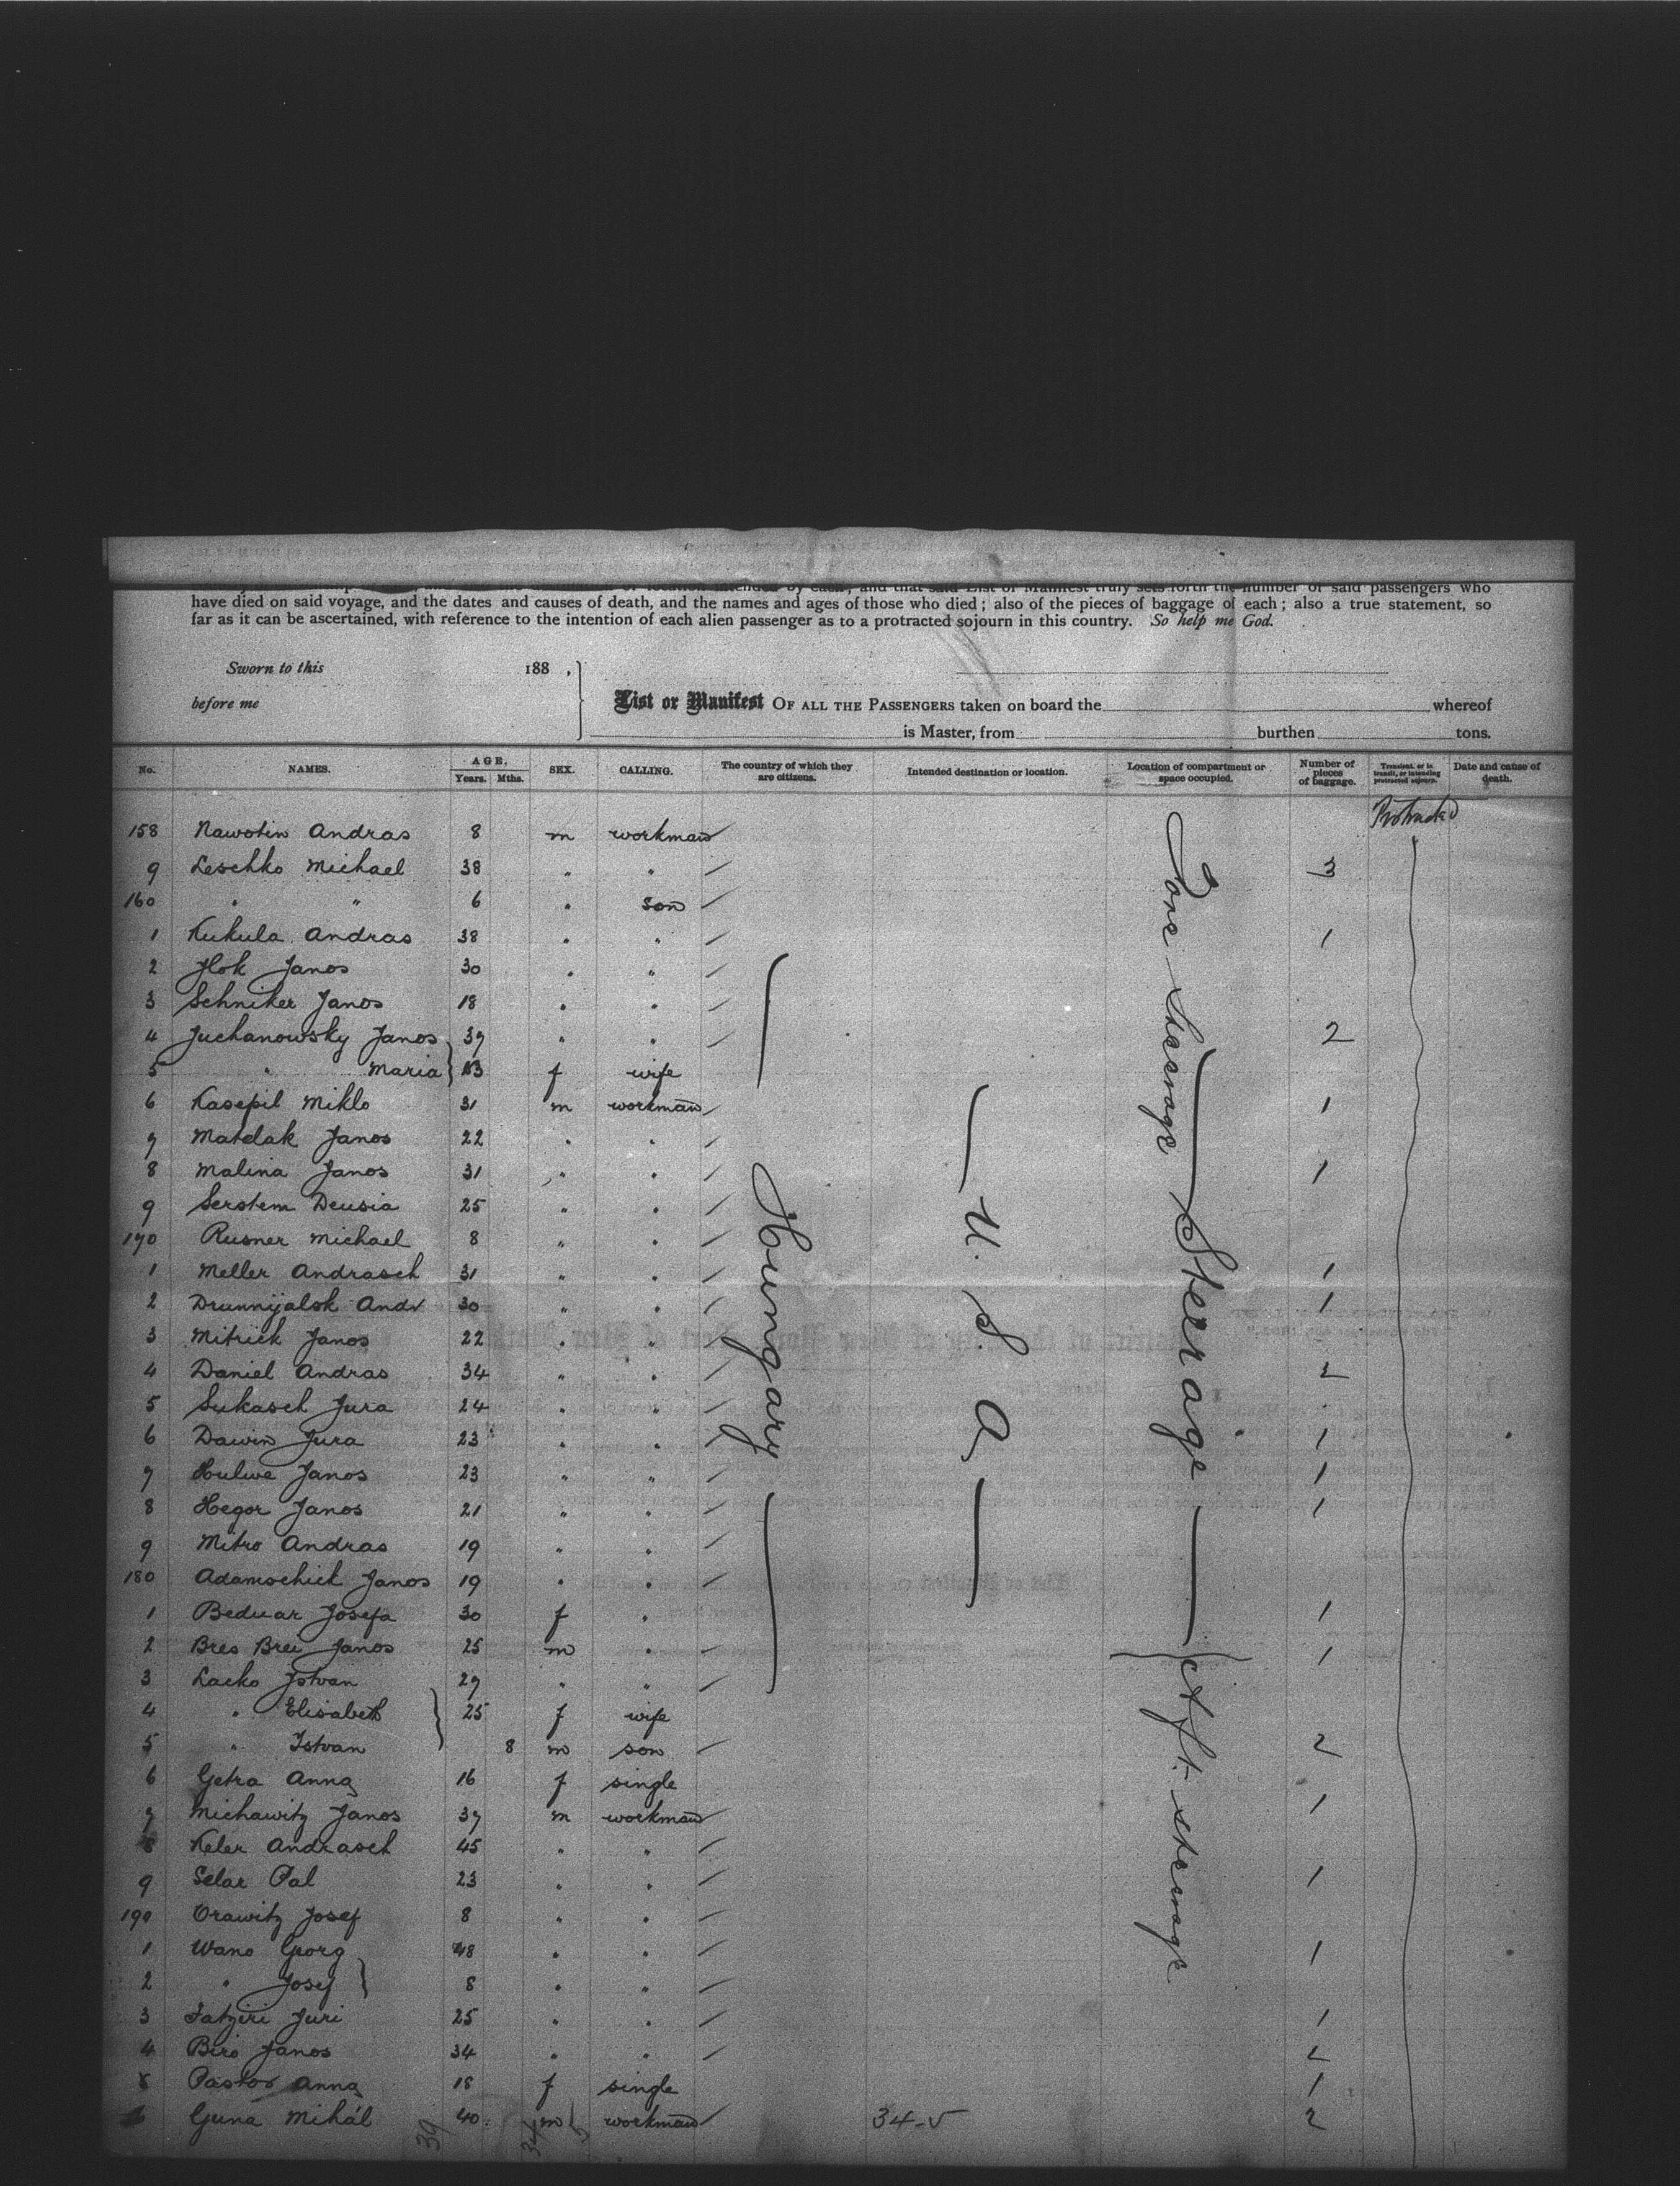 have died on said voyage, and the dates and causes of death, and the names and ages of those who died; also of the pieces of baggage of each; also a true statement, so
far as it can be ascertained, with reference to the intention of each alien passenger as to a protracted sojourn in this country. So help me God.
Sworn to this 188 ,
before me List or Manifest OF ALL THE PASSENGERS taken on board the whereof
is Master, from burthen tons.
No. NAMES. AGE. Years. Mths. SEX. CALLING. The country of which they are citizens. Intended destination or location. Location of compartment or space occupied. Number of pieces of baggage. Transient, or in transit, or intending protracted sojourn. Date and cause of death.
Protracted
158 Nawotin Andras 8 m workman
9 Leschko Michael 38 " " 3
160 " " 6 " son
1 Kukula Andras 38 " " 1
2 Hok Janos 30 " "
3 Schniker Janos 18 " "
4 Juchanowsky Janos 37 " " 2
5 " Maria f wife
6 Kasepil Miklo 31 m workman 1
7 Matelak Janos 22 " "
8 Malina Janos 31 " " 1
9 Serstem Deusia 25 " "
170 Rusner Michael 8 " "
1 Meller Andrasch 31 " " 1
2 Andr 30 " " 1
3 Mitrick Janos 22 " "
4 Daniel Andras 34 " " 2
5 Sukasch Jura 24 " "
6 Dawin Jura 23 " " 1
7 Hulwe Janos 23 " " 1
8 Hegor Janos 21 " " 1
9 Mitro Andras 19 " "
180 Adamschick Janos 19 " "
1 Beduar Josefa 30 f " 1
2 Bres Brei Janos 25 m " 1
3 Lacko Istvan 27 " "
4 " Elisabeth 25 f wife
5 " Istvan 8 m son 2
6 Getra Anna 16 f single
7 Michawitz Janos 37 m workman 1
8 Keler Andrasch 45 " "
9 Selar Pal 23 " " 1
190 Orawitz Josef 8 " "
1 Wano Georg 48 " " 1
2 " Josef 8 " "
3 Juri 25 " " 1
4 Biro Janos 34 " " 2
Pastor Anna 18 f single 1
6 Guna Mihál 40 m workman 34-5 2
39 34 5
Hungary
U. S. A
Fore steerage
Steerage
Aft. steerage